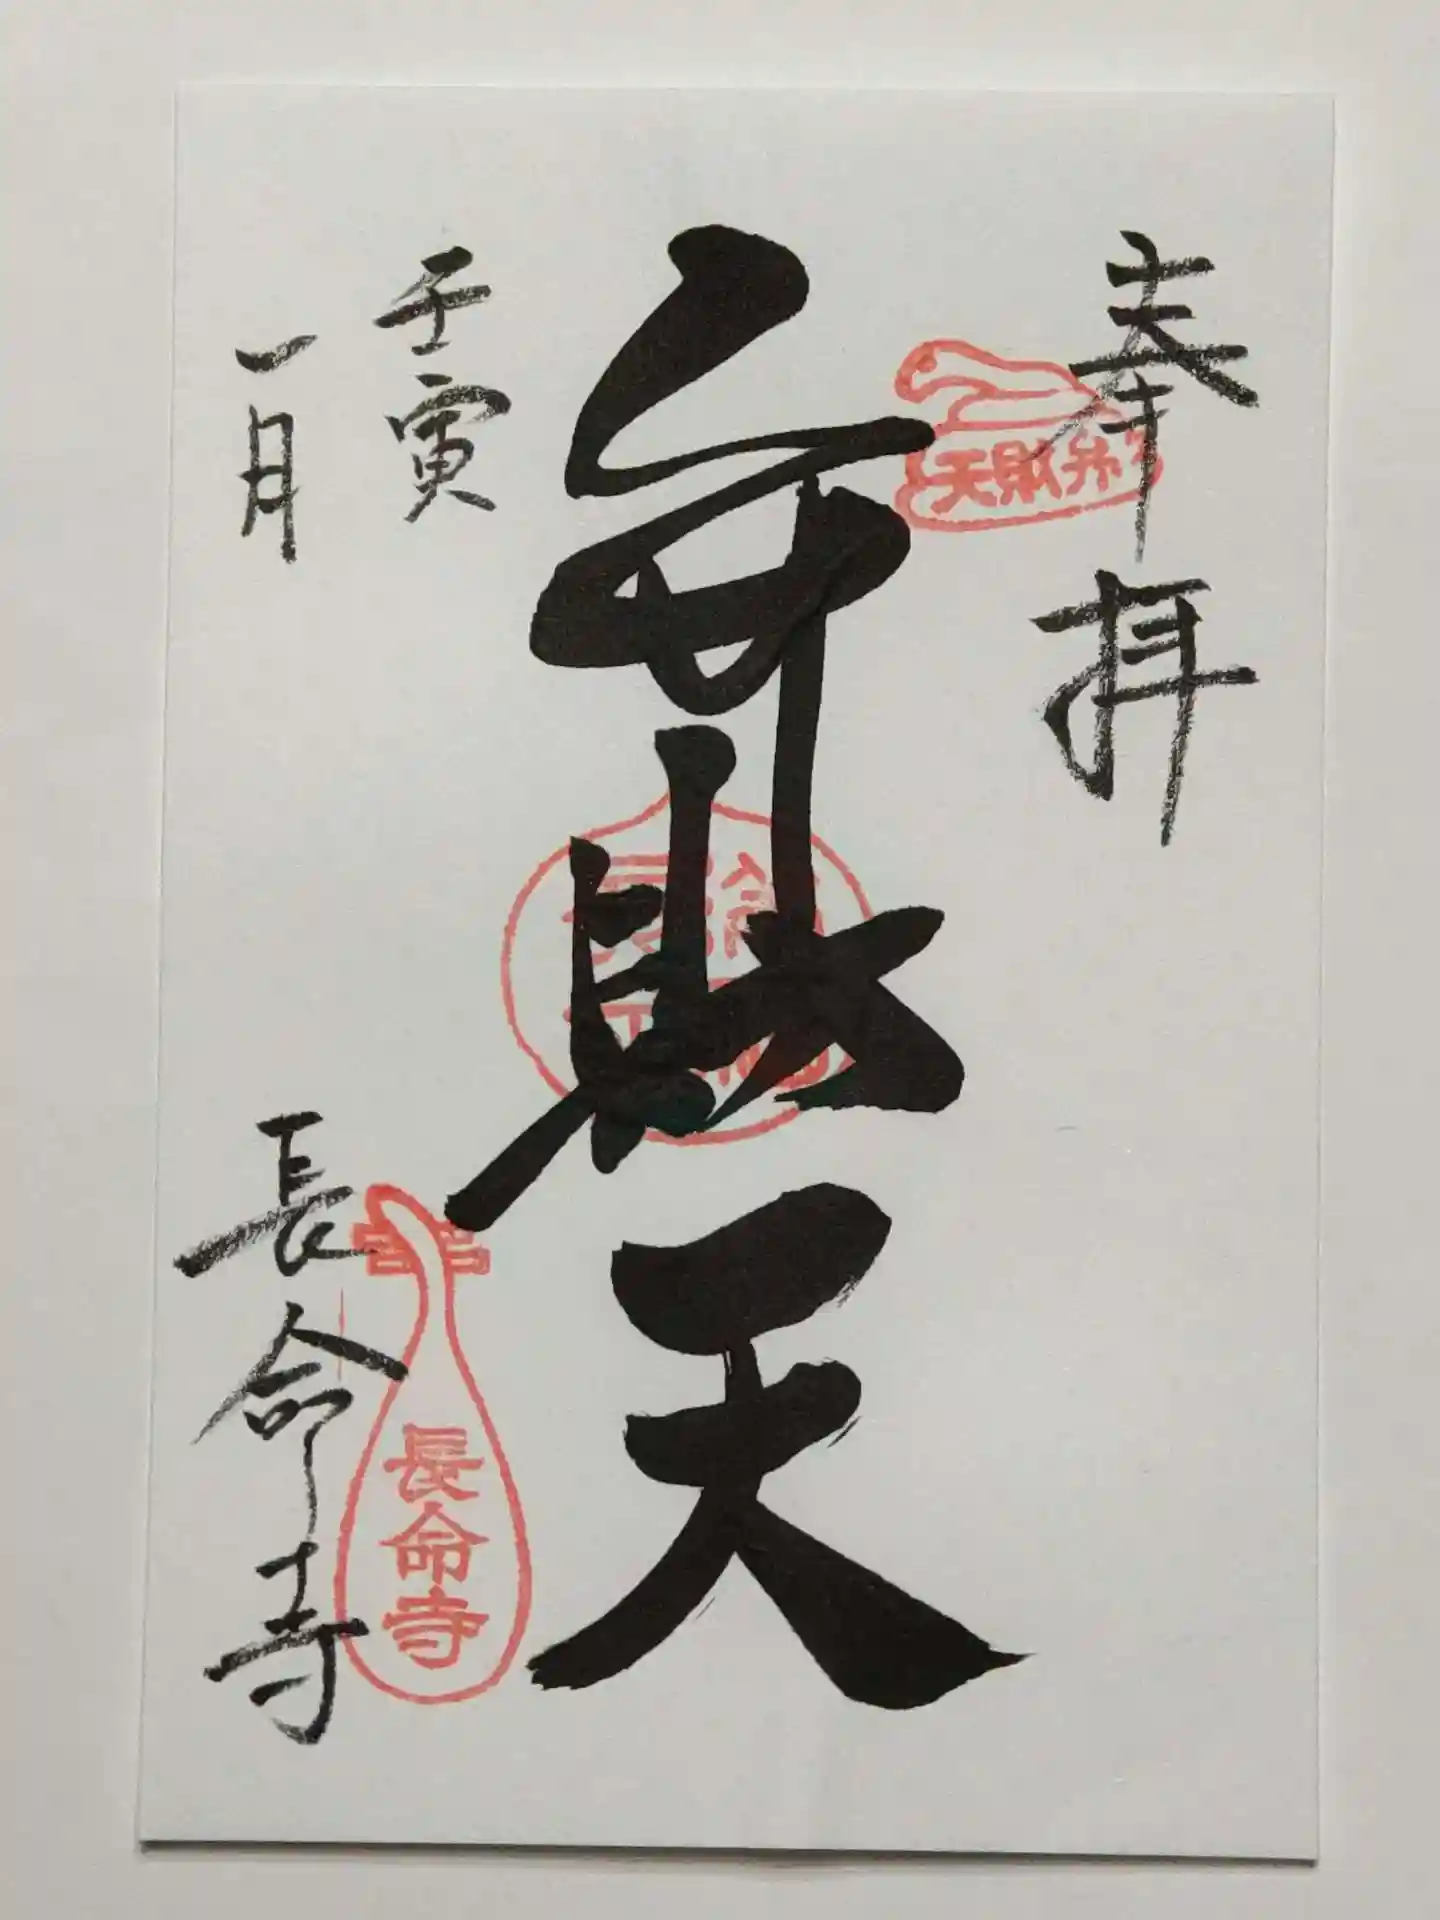 奉拝
弁財天
弁財天
壬寅
一月
長命寺
長命寺